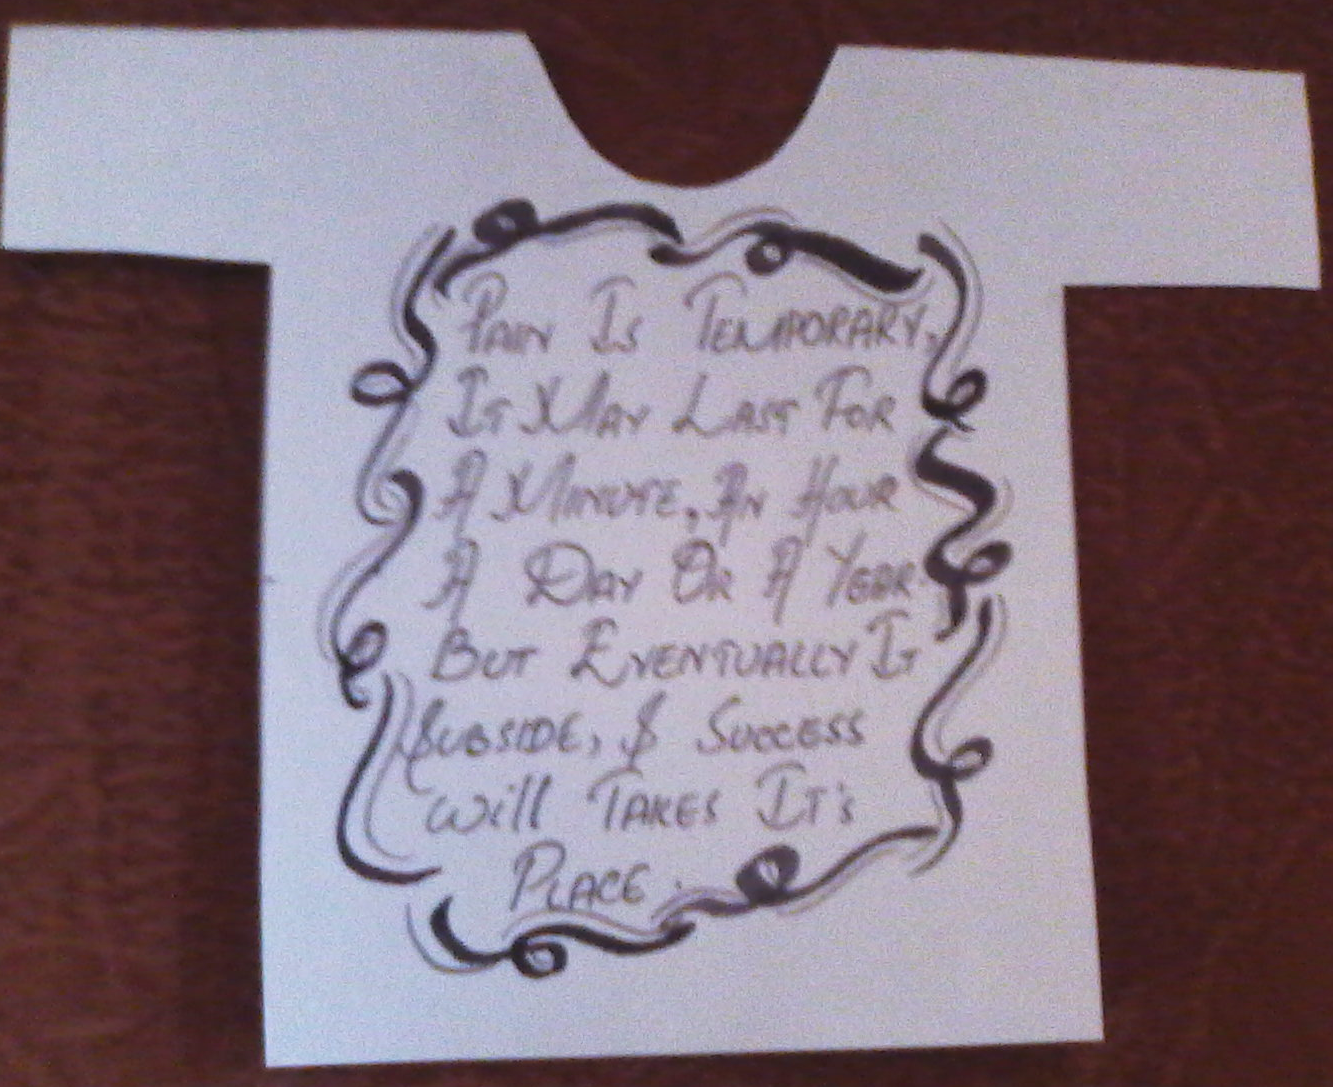 Pain Is Temporary,
It May Last For
A Minute, An Hour
A Day Or A Year.
But Eventually It
Subside, & Success
Will Takes It's
Place.